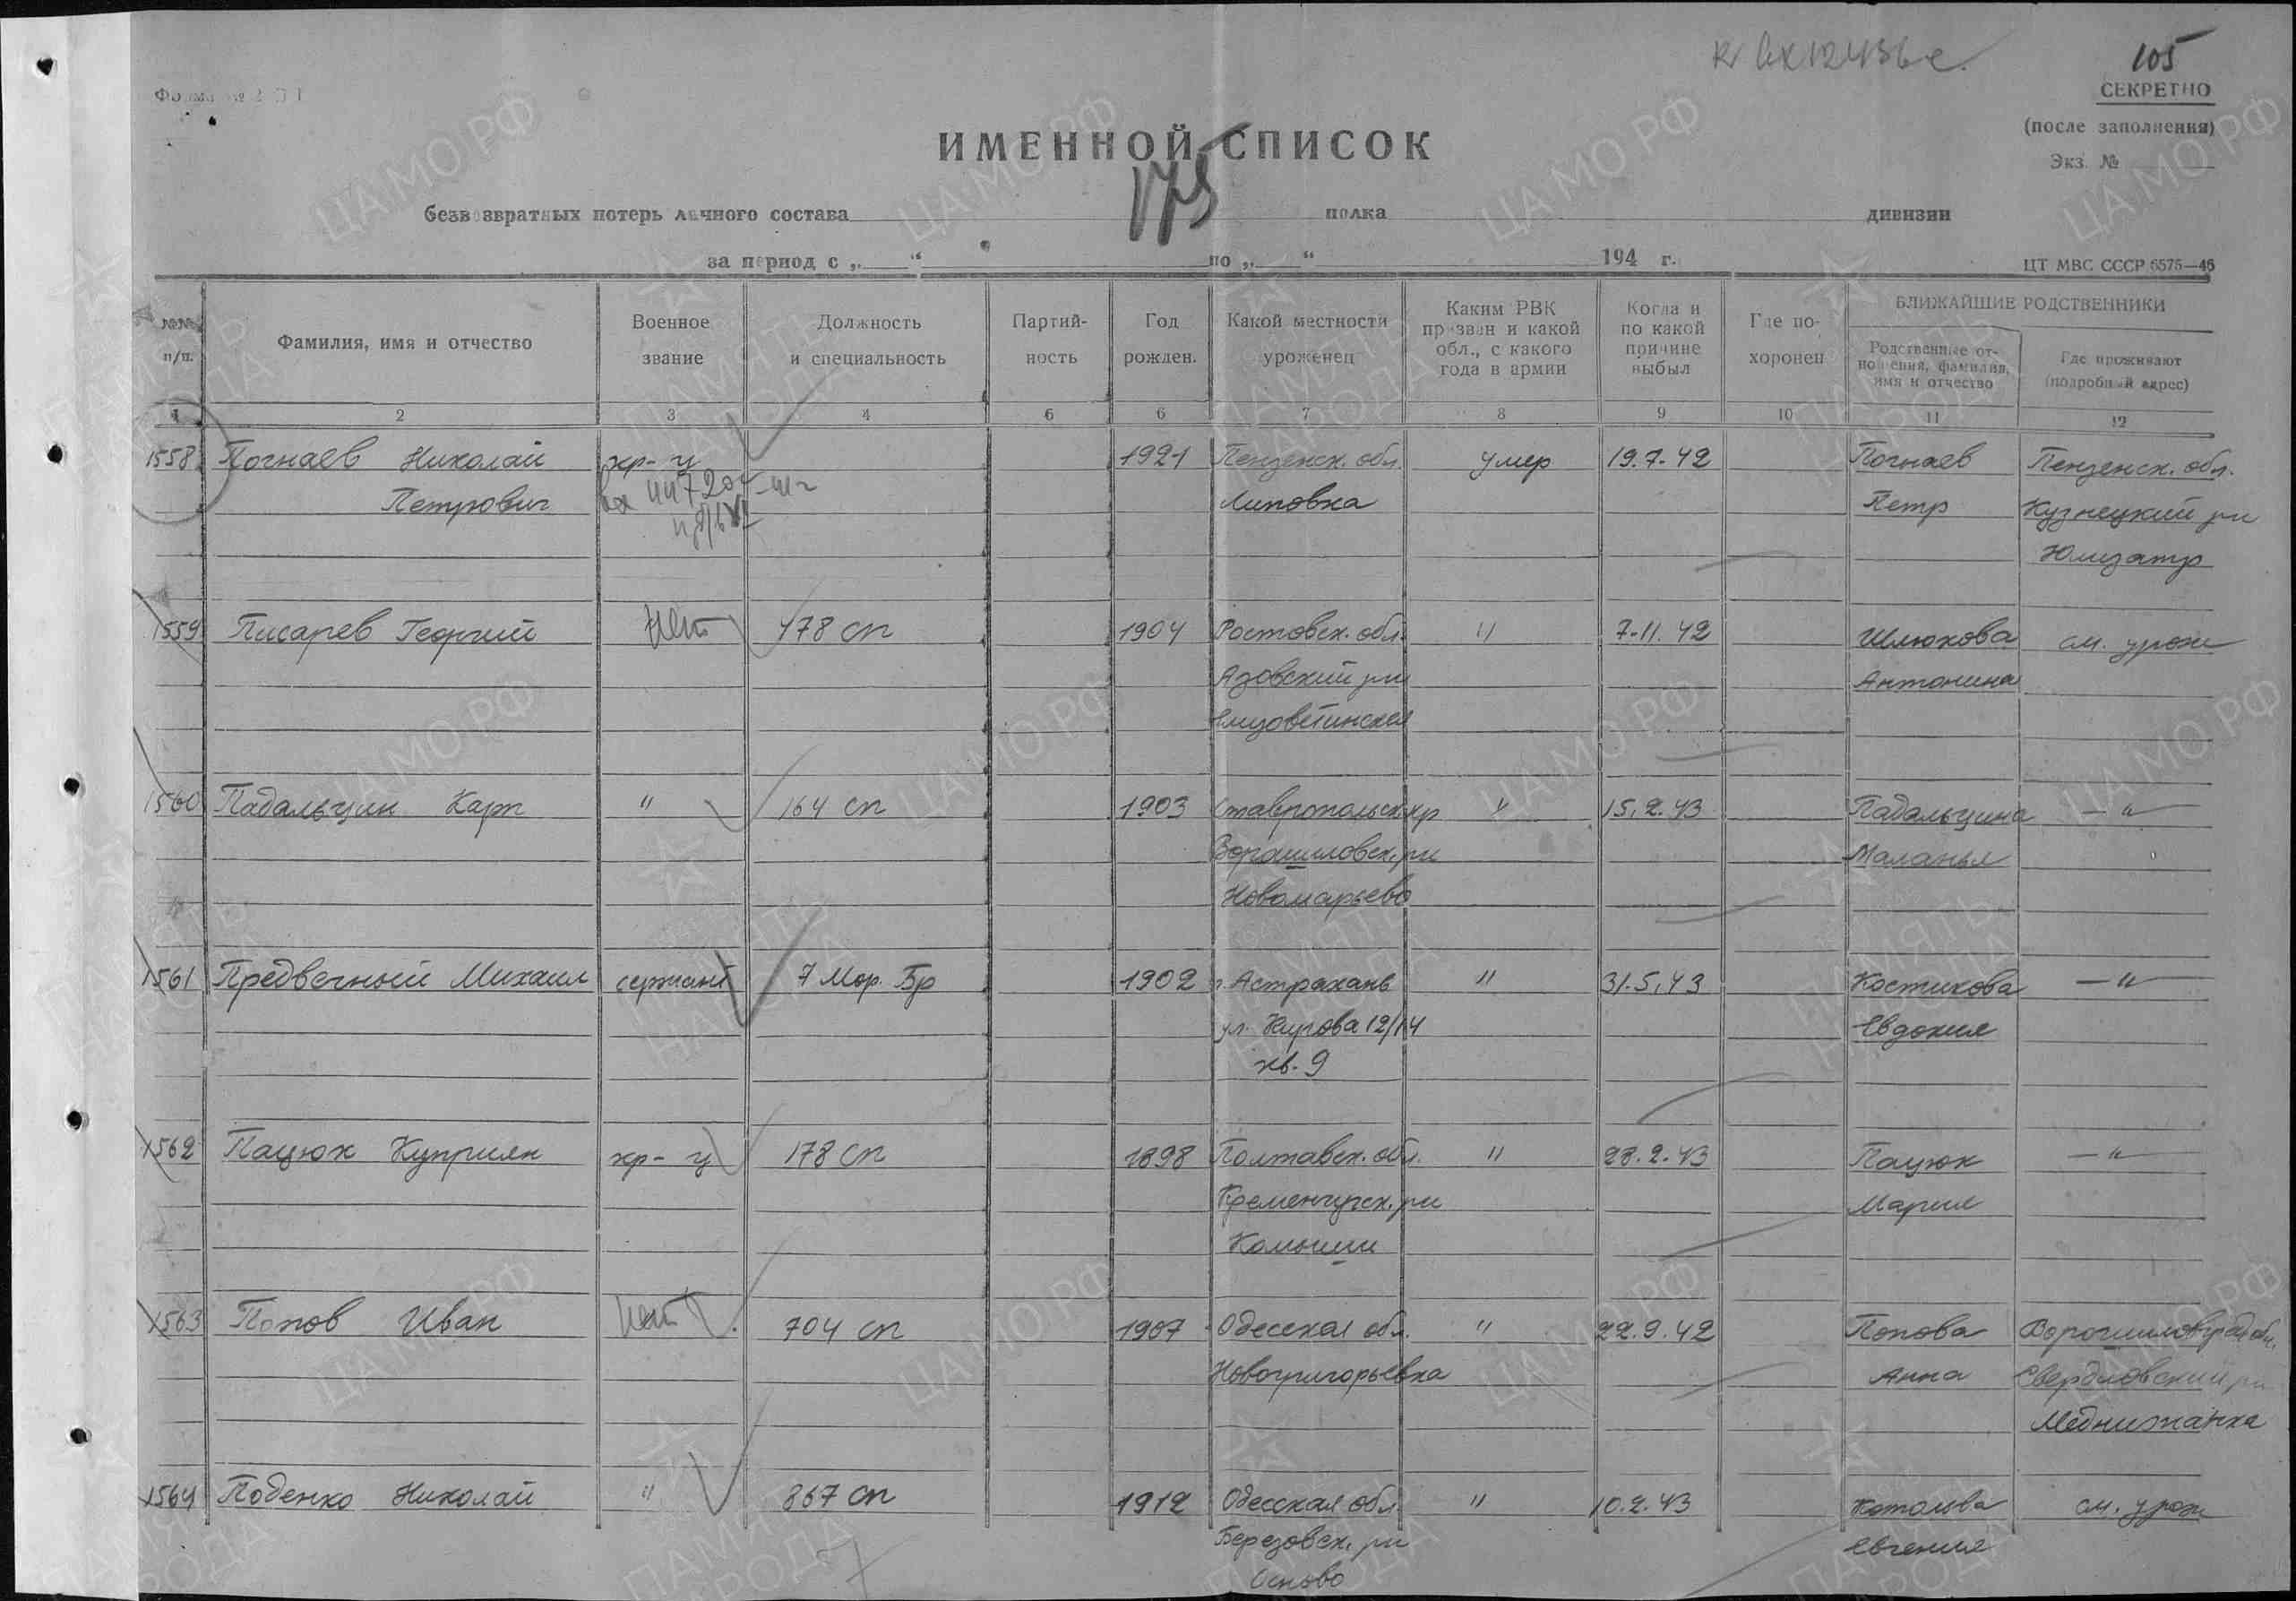 105
СЕКРЕТНО
(после заполнения)
Экз. №
Форма №
ИМЕННОЙ СПИСОК
175
безвозвратных потерь личного состава полка дивизии
за период с „ “ по „ “ 194 г.
ЦТ МВС СССР 6575—46
№№ п/п.
Фамилия, имя и отчество
Военное звание
Должность и специальность
Партий-ность
Год рожден.
Какой местности уроженец
Каким РВК призван и какой обл., с какого года в армии
Когда и по какой причине выбыл
Где по-хоронен
БЛИЖАЙШИЕ РОДСТВЕННИКИ
Родственные от-ношения, фамилия, имя и отчество
Где проживают (подробный адрес)
1 2 3 4 6 6 7 8 9 10 11 12
1558 Погнаев Николай кр-ц 1921 Пензенск. обл. умер 19.7.42 Погнаев Пензенск. обл.
Петрович Липовка Петр Кузнецкий рн
Юлизатр
1559 Писарев Георгий нет 478 сп 1904 Ростовск. обл. " 7.11.42 Шлюкова см. урож
Азовский рн Антонина
Елизоветинская
1560 Падальцин Карп " 164 сп 1903 Ставропольск. кр " 15.2.43 Падальцина — " —
Ворошиловск. рн Маланья
Новомарьево
1561 Предвечный Михаил сержант 7 Мор. Бр 1902 г. Астрахань " 31.5.43 Костикова — " —
ул. Кирова 12/14 Евдокия
кв. 9
1562 Пацюк Куприян кр-ц 178 сп 1898 Полтавск. обл. " 28.2.43 Пацюк — " —
Кременчугск. рн Мария
Комыши
1563 Попов Иван нет 704 сп 1907 Одесская обл. " 22.9.42 Попова Ворошиловградобл.
Новогригорьевка Анна Свердловский рн
Медножанка
1564 Поденко Николай " 867 сп 1912 Одесская обл. " 10.2.43 см. урож
Березовск. рн Евгения